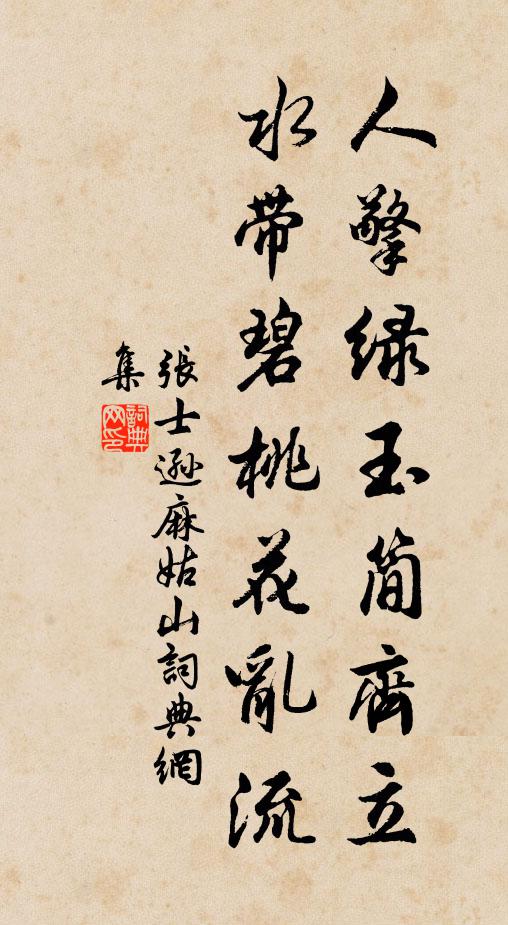 人擎绿玉简齊立
水带碧桃花亂流
張士遜麻姑山詞典網
集
詞典网印